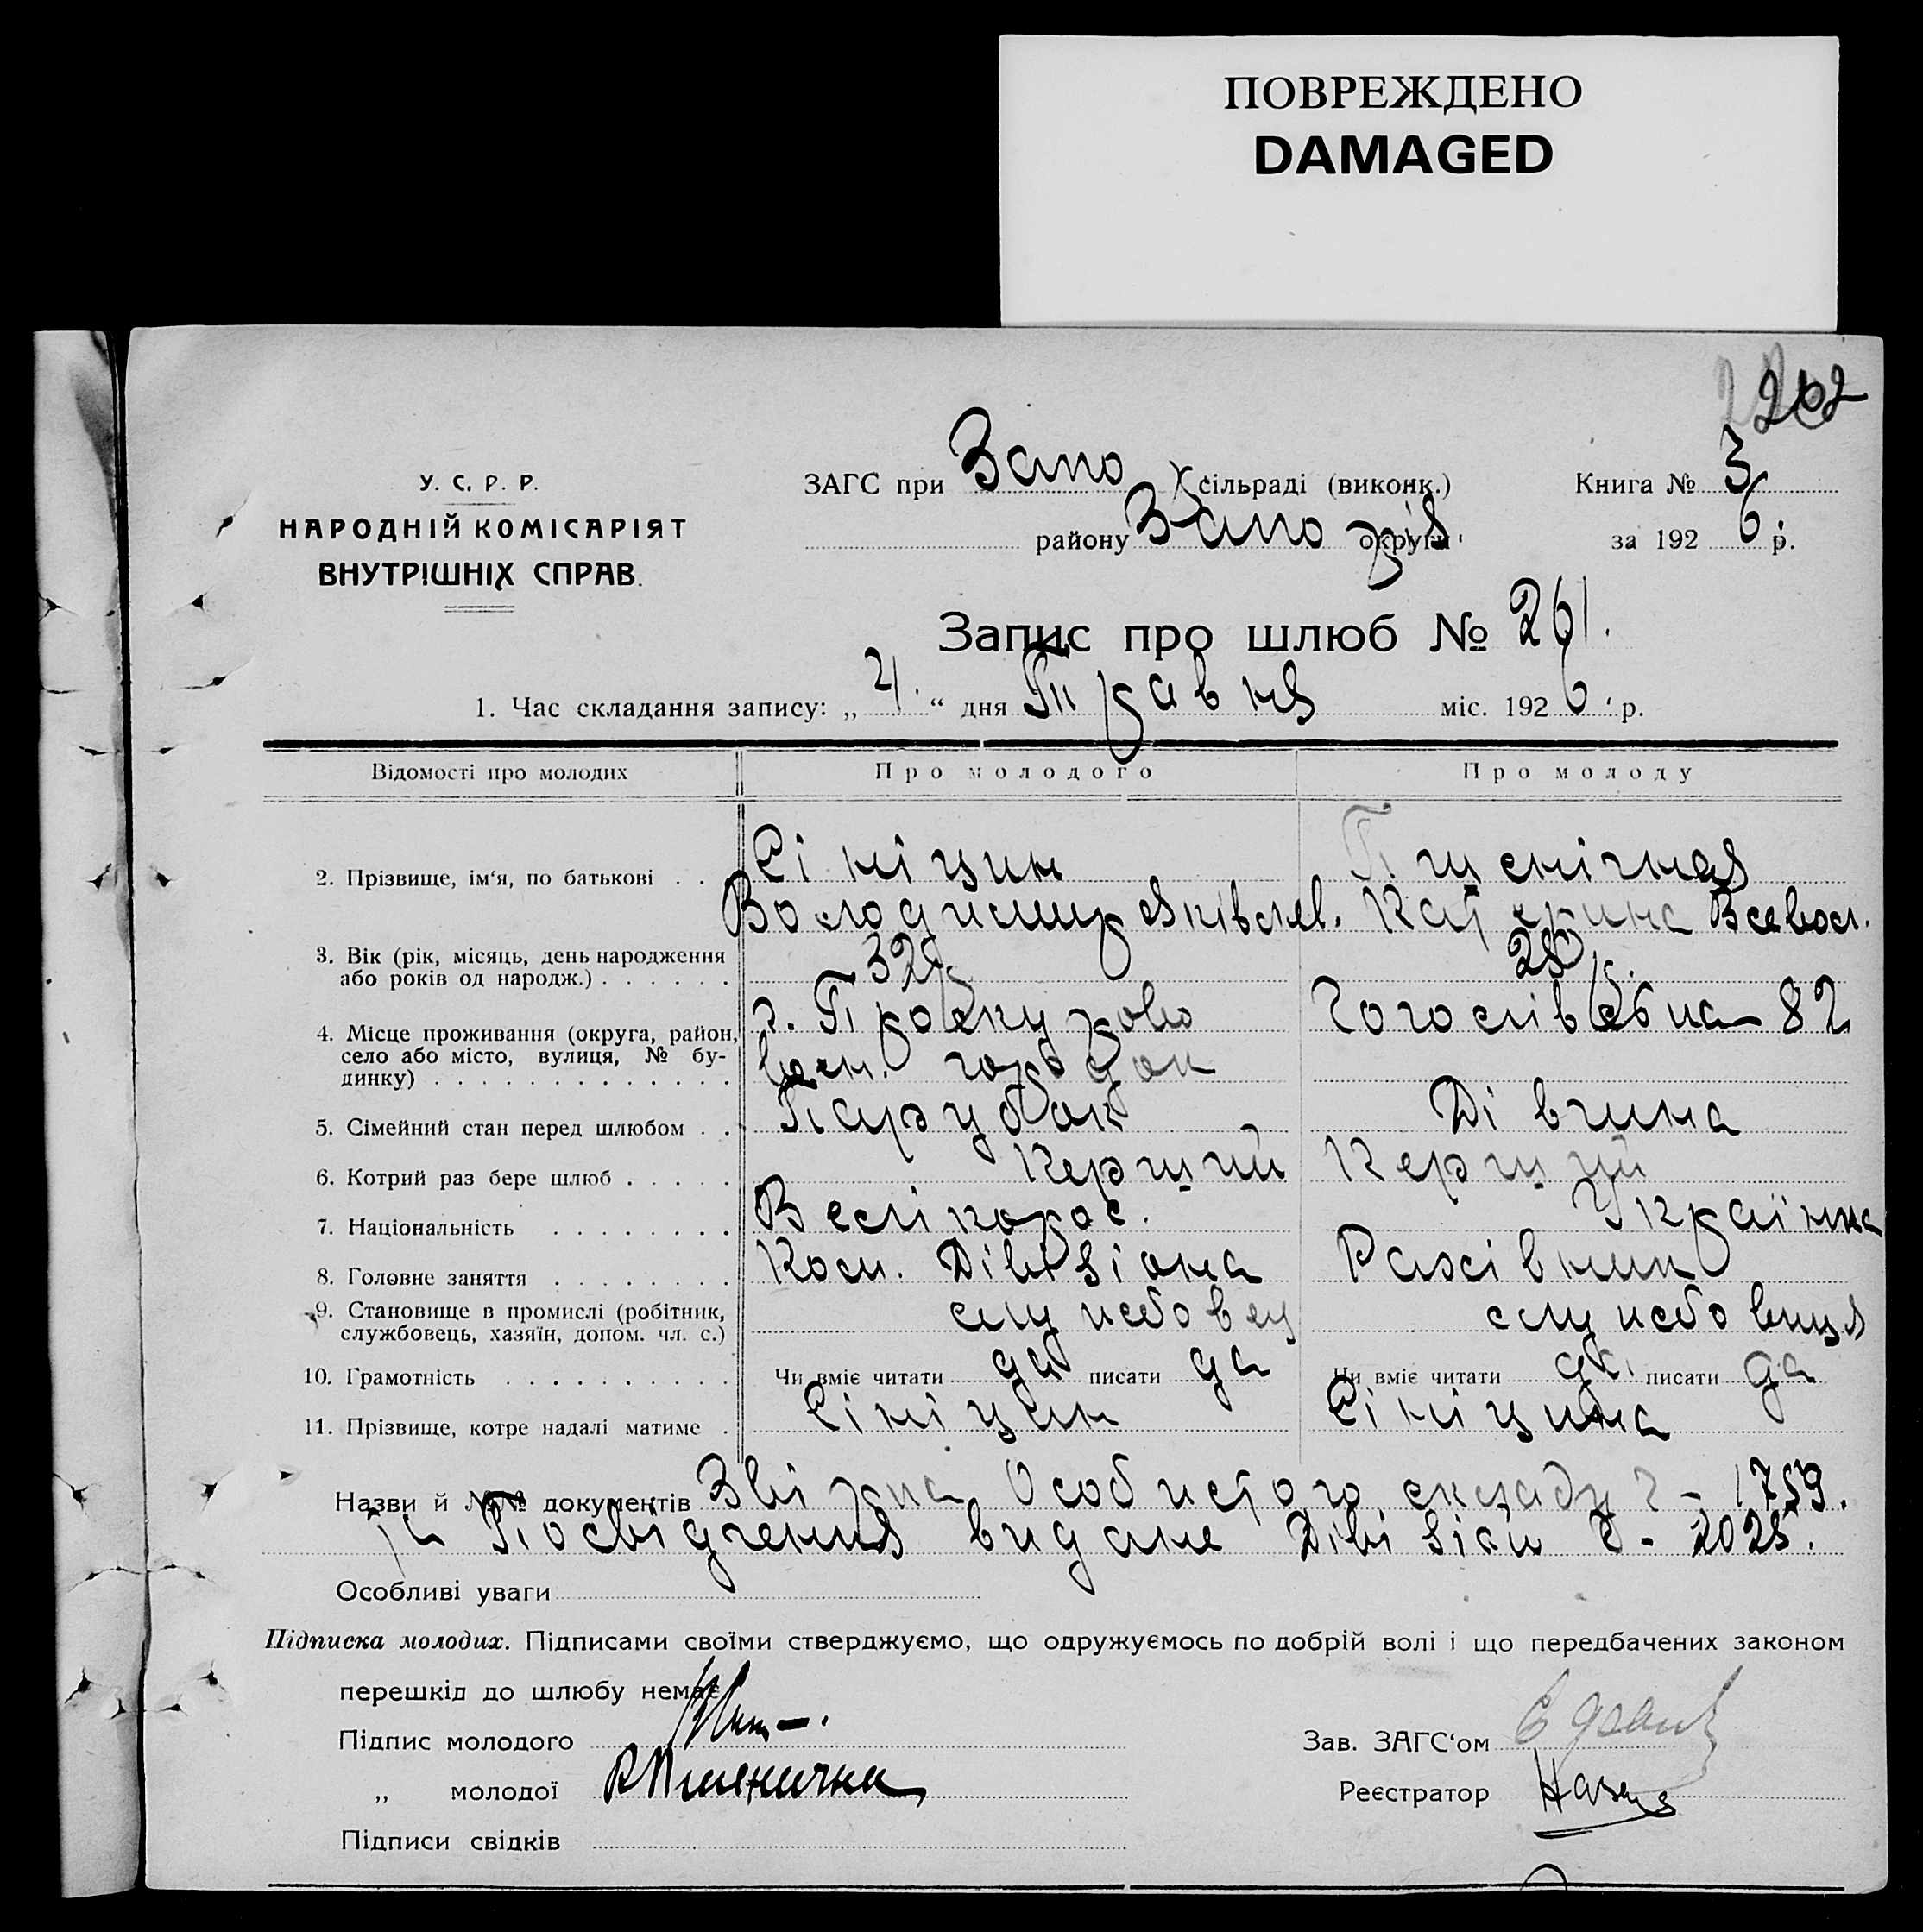 ПОВРЕЖДЕНО
DAMAGED
202
У. С. Р. Р.
НАРОДНІЙ КОМІСАРІЯТ
ВНУТРІШНІХ СПРАВ.
ЗАГС при Запо сільраді (виконк.) Книга № 3
району Запо округи за 192 6 р.
Запис про шлюб № 261.
1. Час складання запису: „ 21. “ дня Травня міс. 192 6 р.
Відомості про молодих Про молодого Про молоду
2. Прізвище, ім‘я, по батькові . . Сініцин Пшенічная
Володимир Яківлев. Катерина Всевол.
3. Вік (рік, місяць, день народження або років од народж.) . . . . . . 32 р. 28 р.
4. Місце проживання (округа, район, село або місто, вулиця, № будинку) . . . . . . . . . . . . . г. Проскурово 82
воєн. городок
5. Сімейний стан перед шлюбом . . Парубок Дівчина
6. Котрий раз бере шлюб . . . . . Перший Перший
7. Національність . . . . . . . . Великорос. Українка
8. Головне заняття . . . . . . . . Ком. Дівізіона Рахівник
9. Становище в промислі (робітник, службовець, хазяїн, допом. чл. с.) службовец службовиця
10. Грамотність . . . . . . . . . . Чи вміє читати да писати да Чи вміє читати да. писати да
11. Прізвище, котре надалі матиме . Сініцин Сініцина
Назви й №№ документів Особистого складу 1759.
Посвідчення видане Дівізією 2025.
Особливі уваги
Підписка молодих. Підписами своїми стверджуємо, що одружуємось по добрій волі і що передбачених законом
перешкід до шлюбу немає
Підпис молодого Зав. ЗАГС‘ом
„ молодої Пшенична Реєстратор
Підписи свідків